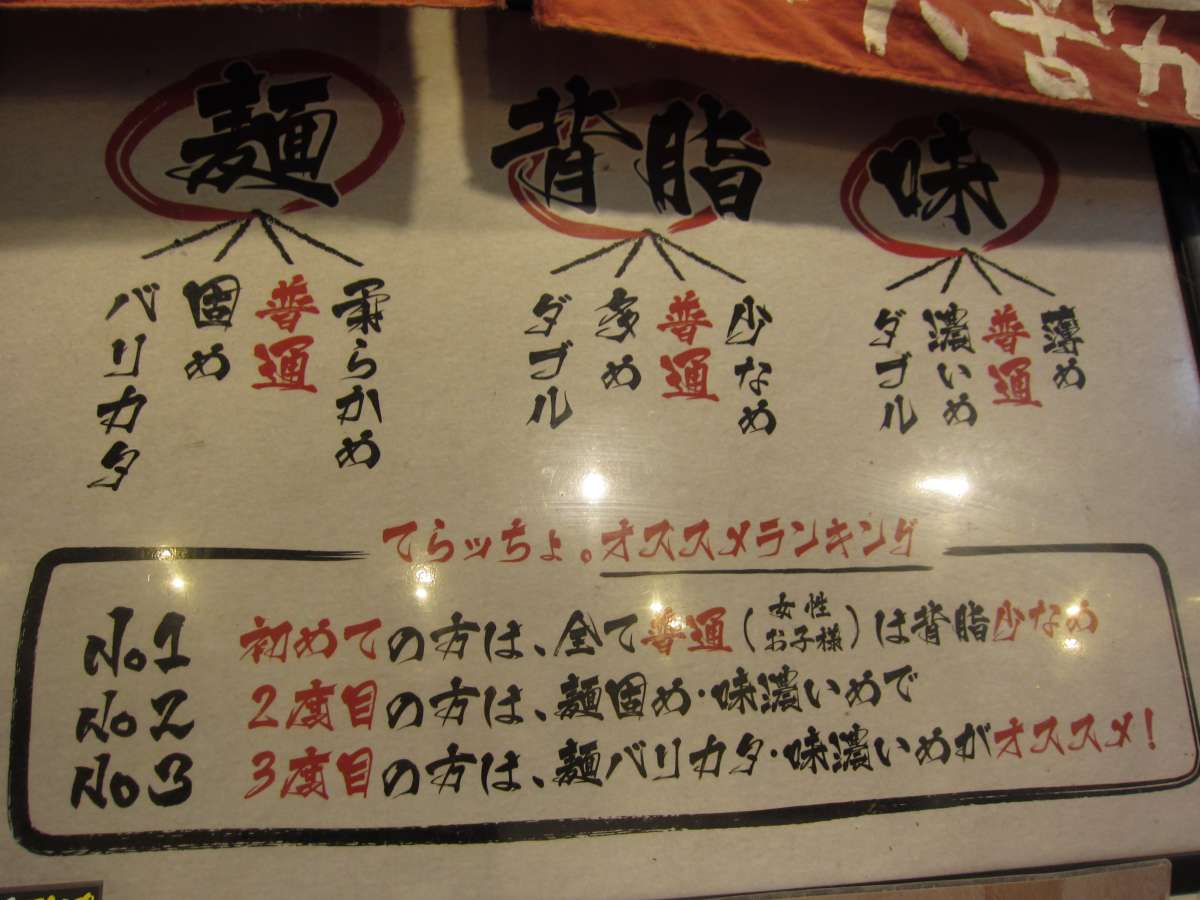 麺
バリカタ
固め
普通
柔らかめ
背脂
ダブル
多め
普通
少なめ
味
ダブル
濃いめ
普通
薄め
てらッちょ。オススメランキング
No1 初めての方は、全て普通(女性お子様)は背脂少なめ
No2 2度目の方は、麺固め・味濃いめで
No3 3度目の方は、麺バリカタ・味濃いめがオススメ!